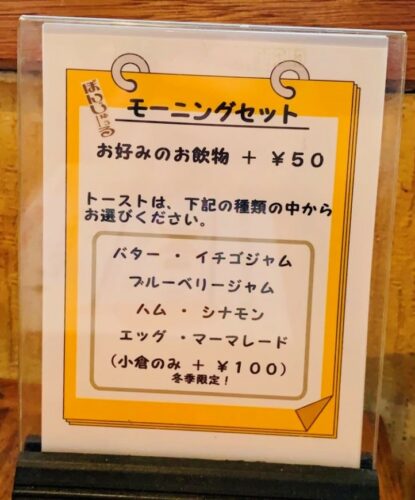 ぼん・じゅーる
モーニングセット
お好みのお飲物 + ¥50
トーストは、下記の種類の中から
お選びください。
バター ・ イチゴジャム
ブルーベリージャム
ハム ・ シナモン
エッグ ・マーマレード
(小倉のみ + ¥100)
冬季限定!